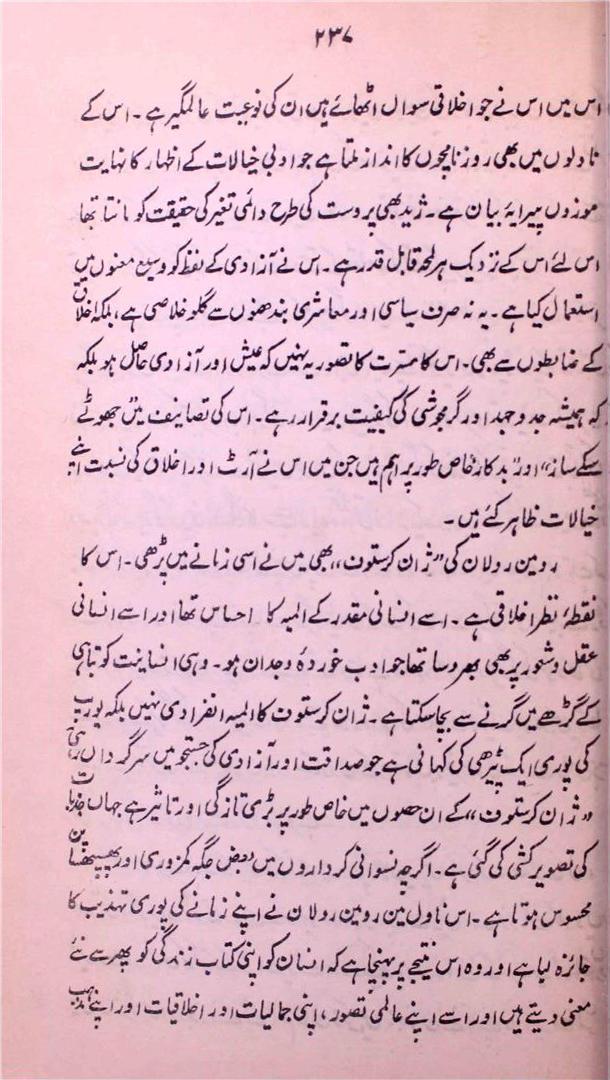 ۲۳۷
اس میں اس نے جو اخلاقی سوال اٹھائے ہیں ان کی نوعیت عالمگیر ہے۔ اس کے
ناولوں میں بھی روزنامچوں کا انداز ملتا ہے جو ادبی خیالات کے اظہار کا نہایت
موزوں پیرایۂ بیان ہے۔ ژید بھی پروست کی طرح دائمی تغیر کی حقیقت کو مانتا تھا
اس لئے اس کے نزدیک ہر لمحہ قابل قدر ہے۔ اس نے آزادی کے لفظ کو وسیع معنوں میں
استعمال کیا ہے۔ یہ نہ صرف سیاسی اور معاشری بندھنوں سے گلو خلاصی ہے، بلکہ اخلاق
کے ضابطوں سے بھی۔ اس کا مسرت کا تصور یہ نہیں کہ عیش اور آزادی حاصل ہو بلکہ
کہ ہمیشہ جدوجہد اور گرمجوشی کی کیفیت برقرار رہے۔ اس کی تصانیف میں جھوٹے
سکے ساز" اور "بدکار" خاص طور پر اہم ہیں جن میں اس نے آرٹ اور اخلاق کی نسبت اپنے
خیالات ظاہر کئے ہیں۔
رومین رولان کی "ژان کرستوف" بھی میں نے اسی زمانے میں پڑھی۔ اس کا
نقطۂ نظر اخلاقی ہے۔ اسے انسانی مقدر کے المیہ کا احساس تھا اور اسے انسانی
عقل و شعور پر بھی بھروسا تھا جو ادب خوردۂ وجدان ہو۔ وہی انسانیت کو تباہی
کے گڑھے میں گرنے سے بچا سکتا ہے۔ ژان کرستوف کا المیہ انفرادی نہیں بلکہ یورپ
کی پوری ایک پیڑھی کی کہانی ہے جو صداقت اور آزادی کی جستجو میں سرگرداں رہی
"ژان کرستوف" کے ان حصوں میں خاص طور پر بڑی تازگی اور تاثیر ہے جہاں جذبات
کی تصویر کشی کی گئی ہے۔ اگرچہ نسوانی کرداروں میں بعض جگہ کمزوری اور پھسپھسا پن
محسوس ہوتا ہے۔ اس ناول میں رومین رولان نے اپنے زمانے کی پوری تہذیب کا
جائزہ لیا ہے اور وہ اس نتیجے پر پہنچا ہے کہ انسان کو اپنی کتاب زندگی کو پھر سے نئے
معنی دیتے ہیں اور اسے اپنے عالمی تصور، اپنی جمالیات اور اخلاقیات اور اپنے مذہب